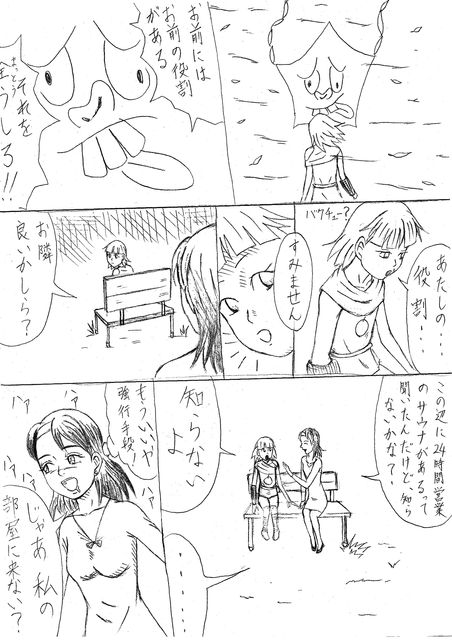 お前には
お前の役割
がある
それを
まっとう
しろ!!
バクチュー?
あたしの・・
役割・・・
すみません
お隣
良いかしら?
この辺に24時間営業
のサウナがあるって
聞いたんだけど、知ら
ないかな?
知らない
よ
・・・・・・
もういいや
強行手段
ハァ
ハァ
ハァ
ハァ
じゃあ私の
部屋に来ない?